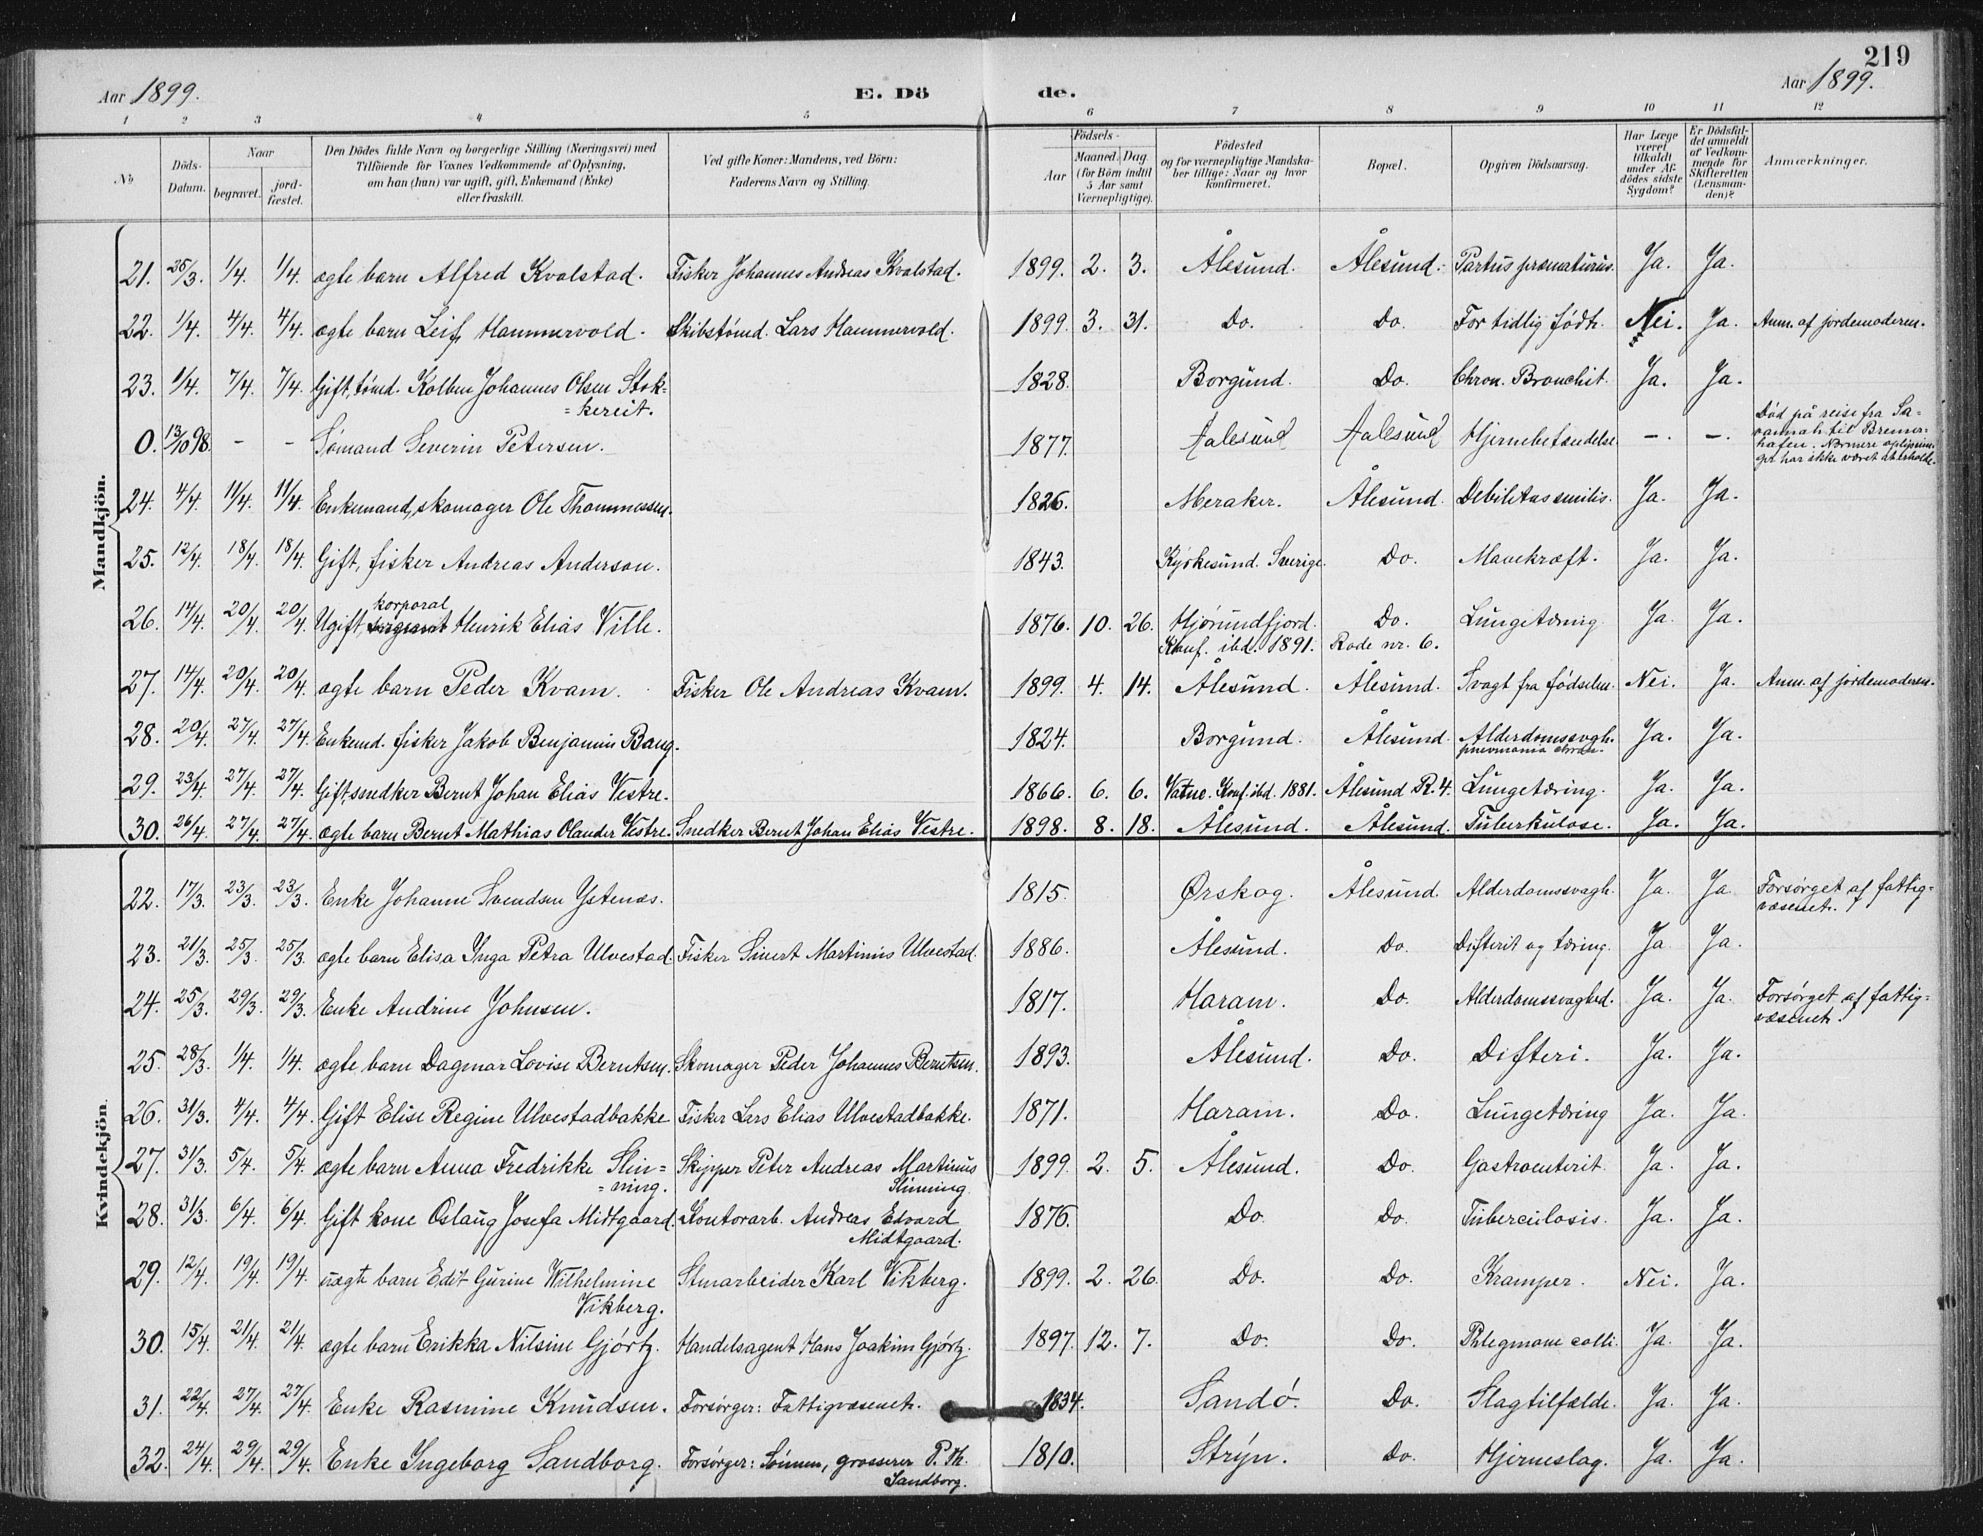 219
Aar 1899. E. Dö de. Aar 1899.
1 2 3 4 5 6 7 8 9 10 11 12
No
Döds-Datum.
Naar begravet. jord-fæstet.
Den Dödes fulde Navn og borgerlige Stilling (Næringsvei) med Tilföiende for Voxnes Vedkommende af Oplysning, om han (hun) var ugift, gift, Enkemand (Enke) eller fraskilt.
Ved gifte Koner: Mandens, ved Börn: Faderens Navn og Stilling.
Födsels- Aar Maaned. Dag (for Börn indtil 5 Aar samt Værnepligtige).
Födested og for værnepligtige Mandskaber tillige: Naar og hvor konfirmeret.
Bopæl.
Opgiven Dödsaarsag.
Har Læge været tilkaldt under Afdödes sidste Sygdom?
Er Dödsfaldet anmeldt af Vedkommende for Skifteretten (Lensmanden)?
Anmærkninger.
Mandkjön.
21. 25/3. 1/4. 1/4. ægte barn Alfred Kvalstad. Fisker Johannes Andreas Kvalstad. 1899. 2. 3. Ålesund. Ålesund. Partus prænaturus. Ja. Ja.
22. 1/4. 4/4. 4/4. ægte barn Leif Hammervold. Skibstømd. Lars Hammervold. 1899. 3. 31. Do. Do. For tidlig født. Nei. Ja. Anm. af jordemoderen.
23. 1/4. 7/4. 7/4. Gift, tømd. Kolben Johannes Olsen Stok=
=kereit. 1828. Borgund. Do. Chron. Bronchit. Ja. Ja.
0. 13/10 98. - - Sømand Severin Petersen. 1877. Aalesund Aalesund Hjernebetændelse -. -. Død på reise fra Sa-
vannah til Bremer-
hafen. Nærmere oplysnin-
ger har ikke været at erholde.
24. 4/4. 11/4. 11/4. Enkemand, skomager Ole Thommessen. 1826. Meraker. Ålesund. Debilitas senilis. Ja. Ja.
25. 12/4. 18/4. 18/4. Gift, fisker Andreas Anderson. 1843. Kyrkesund. Sverige. Do. Mavekræft. Ja. Ja.
korporal
26. 14/4. 20/4. 20/4. Ugift, sergeant Henrik Elias Ville. 1876. 10. 26. Hjørundfjord. Do. Lungetæring. Ja. Ja.
Konf. ibd. 1891. Rode nr. 6.
27. 14/4. 20/4. 20/4. ægte barn Peder Kvam. Fisker Ole Andreas Kvam. 1899. 4. 14. Ålesund. Ålesund. Svagt fra fødselen. Nei. Ja. Anm. af jordemoderen.
28. 20/4. 27/4. 27/4. Enkemd. fisker Jakob Benjamin Bang. 1824. Borgund. Ålesund. Alderdomssvagh. Ja. Ja.
pneumonia chron.
29. 23/4. 27/4. 27/4. Gift, snedker Bernt Johan Elias Vestre. 1866. 6. 6. Vatne. Konf. ibd. 1881. Ålesund R. 4. Lungetæring. Ja. Ja.
30. 26/4. 27/4. 27/4. ægte barn Bernt Mathias Olander Vestre. Snedker Bernt Johan Elias Vestre. 1898. 8. 18. Ålesund. Ålesund. Tuberkulose. Ja. Ja.
Kvindekjön.
22. 17/3. 23/3. 23/3. Enke Johanne Svendsen Ystenæs. 1815. Ørskog. Ålesund. Alderdomssvagh. Ja. Ja Forsørget af fattig=
væsenet.
23. 21/3. 25/3. 25/3. ægte barn Elisa Inga Petra Ulvestad. Fisker Sivert Martinus Ulvestad. 1886. Ålesund. Do. Difterit og tæring. Ja Ja.
24. 25/3. 29/3. 29/3. Enke Andrine Johnsen. 1817. Haram. Do. Alderdomssvaghed. Ja. Ja. Forsørget af fattig=
væsenet.
25. 28/3. 1/4. 1/4. ægte barn Dagmar Lovise Berntsen. Skomager Peder Johannes Berntsen. 1893. Ålesund. Do. Difteri. Ja. Ja.
26. 31/3. 4/4. 4/4. Gift Elise Regine Ulvestadbakke Fisker Lars Elias Ulvestadbakke. 1871. Haram. Do. Lungetæring Ja. Ja.
27. 31/3. 5/4. 5/4. ægte barn Anna Fredrikke Slin= Skipper Peter Andreas Martinus 1899. 2. 5. Ålesund. Do. Gastroenterit. Ja. Ja.
=ning. Slinning
28. 31/3. 6/4. 6/4. Gift kone Oslaug Josefa Midtgaard. Kontorarb. Andreas Edvard 1876. Do Do. Tuberculosis. Ja. Ja.
Midtgaard.
29. 12/4. 19/4. 19/4. uægte barn Edit Gurine Wilhelmine Stuarbeider Karl Vikberg. 1899. 2. 26. Do. Do. Kramper. Nei. Ja.
Vikberg.
30. 15/4. 21/4. 21/4. ægte barn Erikka Nilsine Gjörtz. Handelsagent Hans Joakim Gjörtz. 1897. 12. 7. Do. Do. Phlegmone colli. Ja. Ja.
31. 22/4. 27/4. 27/4. Enke Rasmine Knudsen. Forsørger: Fattigvæsenet. 1834. Sandö. Do. Slagtilfælde. Ja. Ja.
32. 24/4. 29/4. 29/4. Enke Ingeborg Sandborg. Forsørger: Sønnen, grosserer P. Th. 1810. Stryn. Do. Hjerneslag. Ja. Ja.
Sandborg.